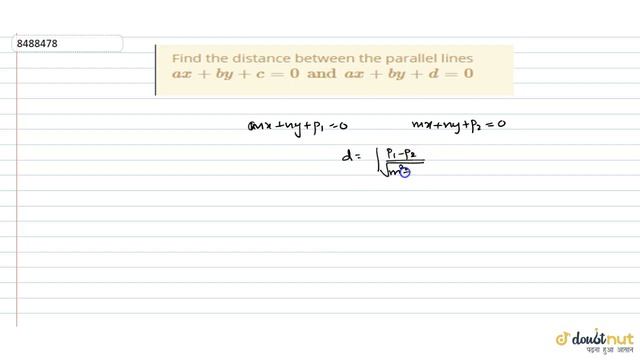 8488478
Find the distance between the parallel lines
ax + by + c = 0 and ax + by + d = 0
mx+ny+p₁=0 mx+ny+p₂=0
d= | p₁-p₂
√m²
doubtnut
पढ़ना हुआ आसान